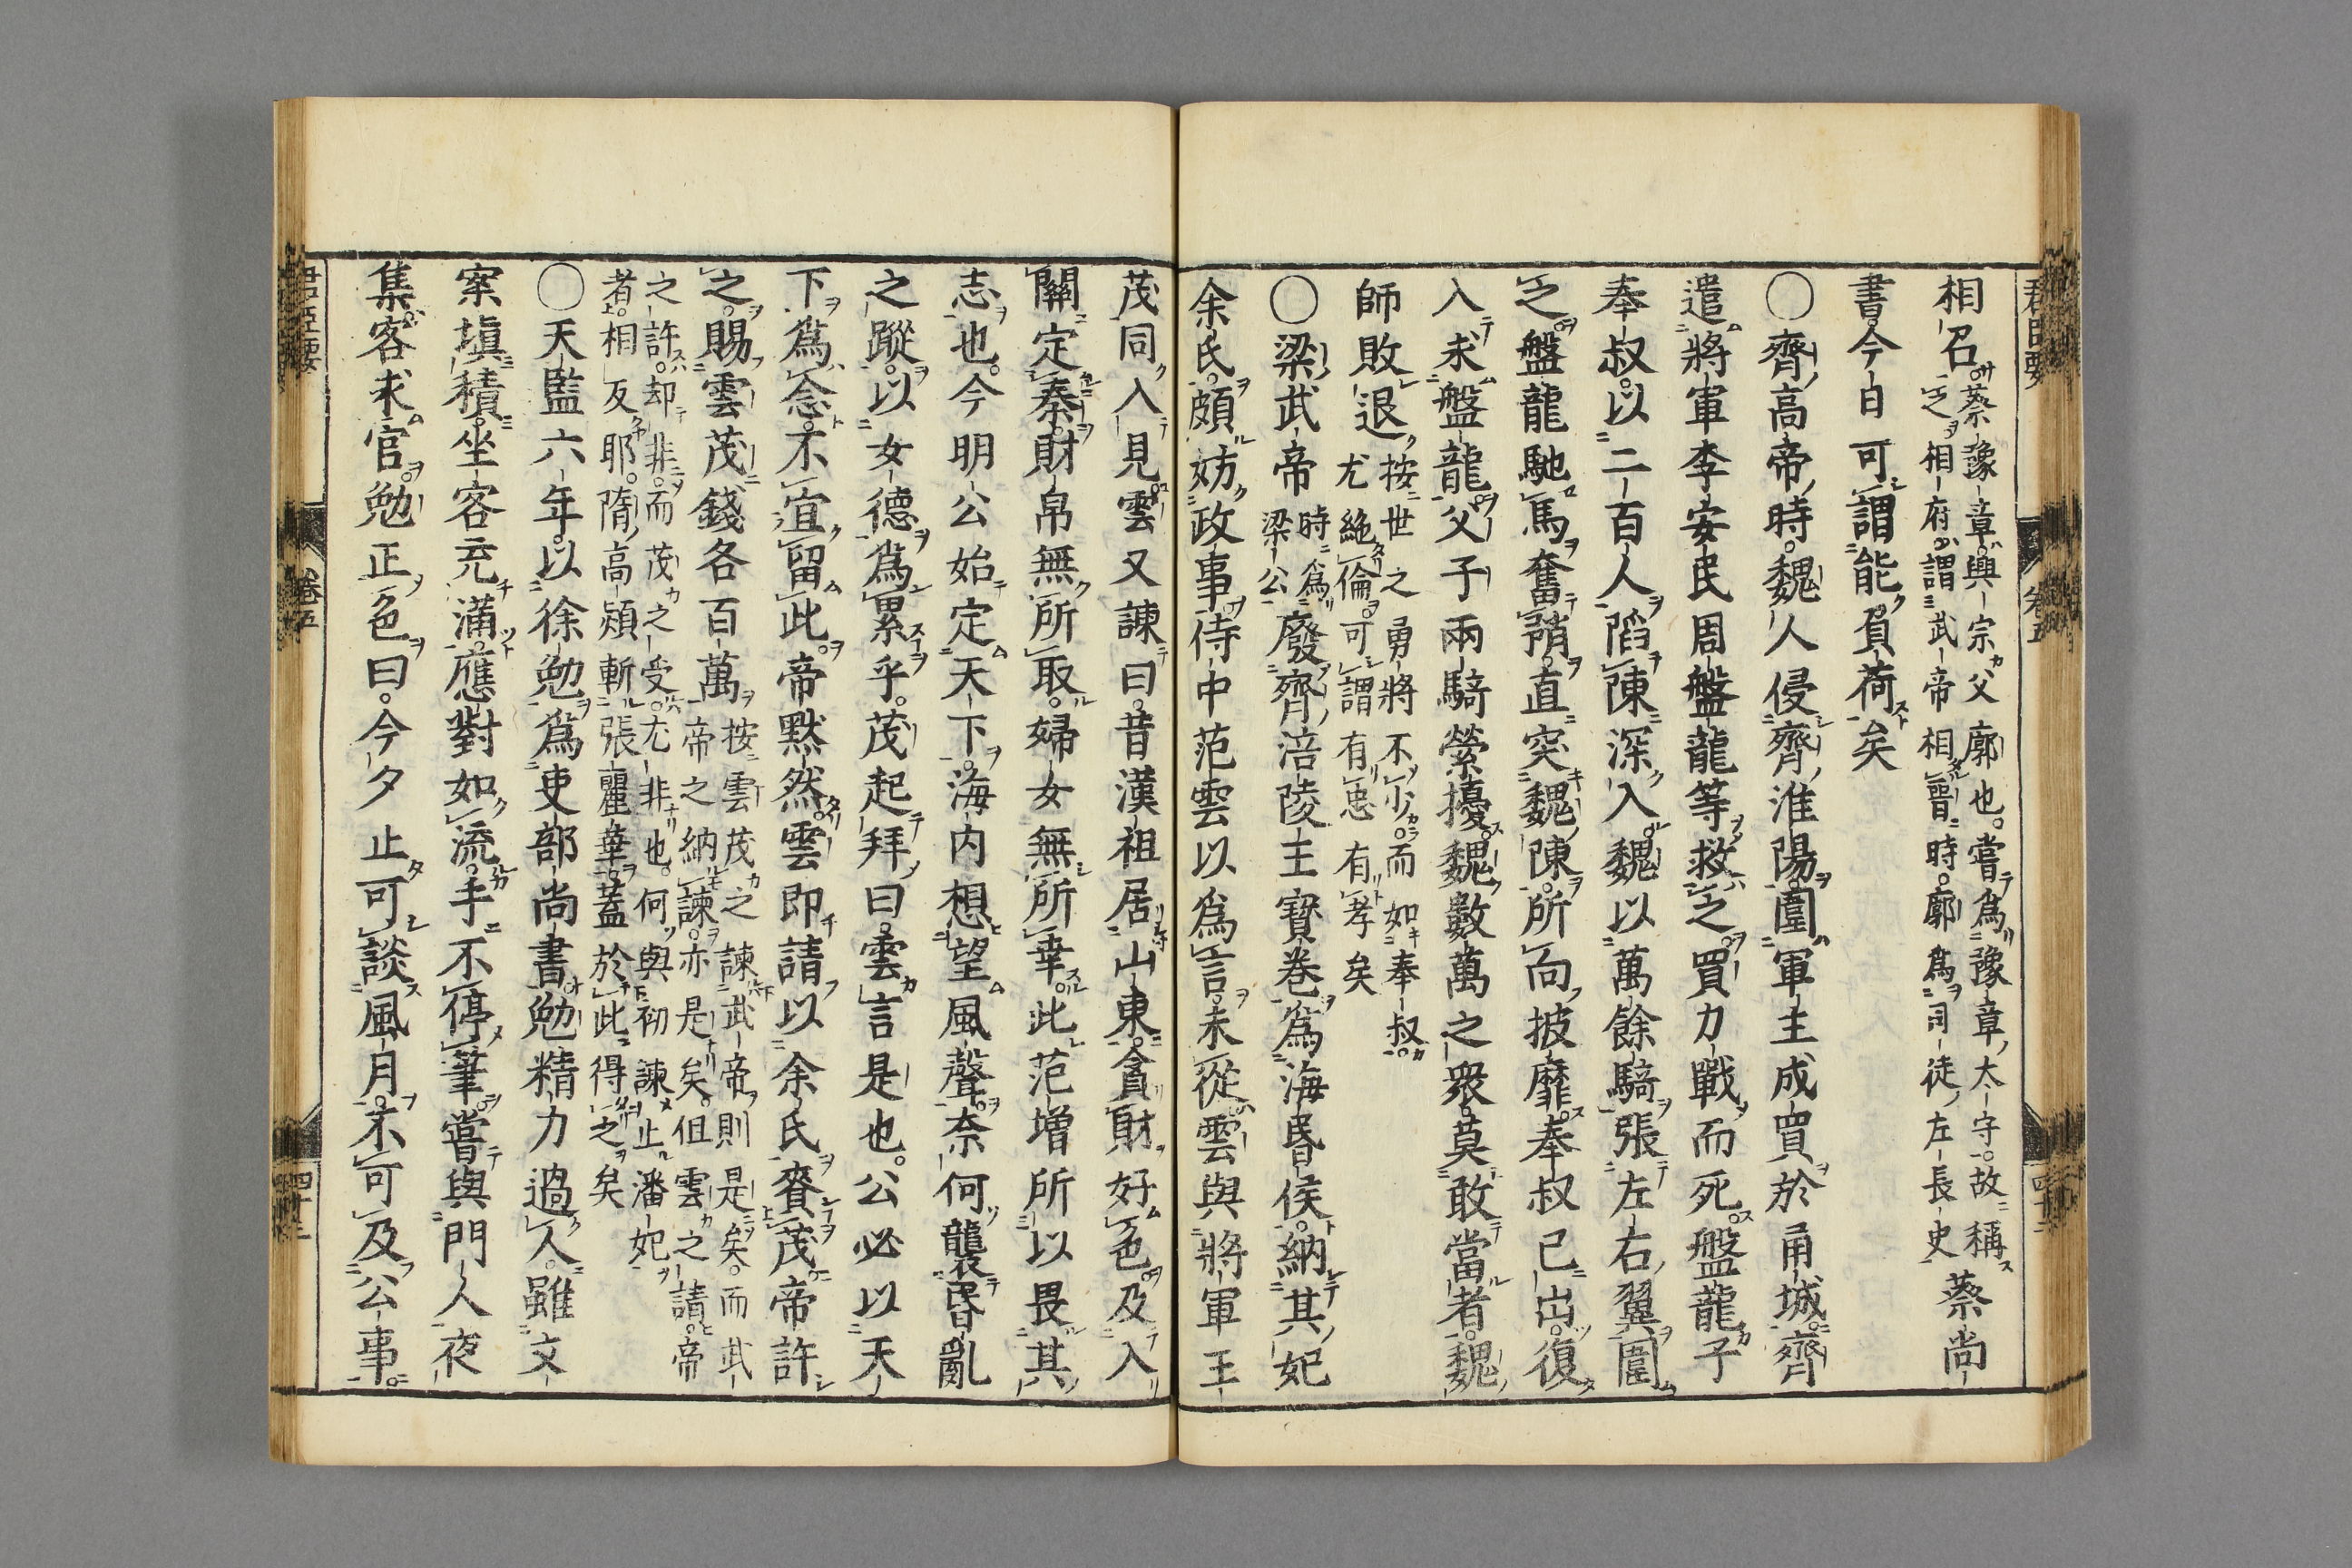 相召
蔡豫章興宗父廓也。嘗爲豫章太守。故稱
之相府謂武帝相晉時。廓爲司徒左長史
蔡尚
書。今日可謂能負荷矣
〇齊高帝時。魏人侵齊淮陽圍軍主成買於甬城。齊
遣將軍李安民周盤龍等救之買力戰而死。盤龍子
奉叔。以二百人陷陳深入魏以萬餘騎張左右翼圍
之盤龍馳馬奮矟。直突魏陳。所向披靡。奉叔已出。復
入求盤龍父子兩騎縈擾。魏數萬之衆。莫敢當者。魏
師敗退
按世之勇將不少。而如奉叔。
尤絶倫。可謂有忠有孝矣
〇梁武帝
時爲
梁公
廢齊涪陵王寳卷爲海昏侯。納其妃
余氏。頗妨政事。侍中范雲以爲言。未從。雲與將軍王
茂同入見雲又諫曰。昔漢祖居山東。貪財好色及入
關定秦。財帛無所取。婦女無所幸。此范增所以畏其
志也。今明公始定天下。海内想望風聲。奈何襲昏亂
之蹤。以女德爲累乎。茂起拜曰。雲言是也。公必以天
下爲念。不宜留此。帝默然。雲即請以余氏賚茂帝許
之。賜雲茂錢各百萬
按雲茂之諫武帝則是矣。而武
帝之納諫。亦是矣。但雲之請。帝
之許。却非。而茂之受。尤非也。何與初諫止潘妃
者。相反耶。隋高熲斬張麗華。蓋於此得之矣
〇天監六年。以徐勉爲吏部尚書。勉精力過人。雖文
案塡積。坐客充滿。應對如流。手不停筆。嘗與門人夜
集。客求官。勉正色曰。今夕止可談風月。不可及公事。
卷五
四十二